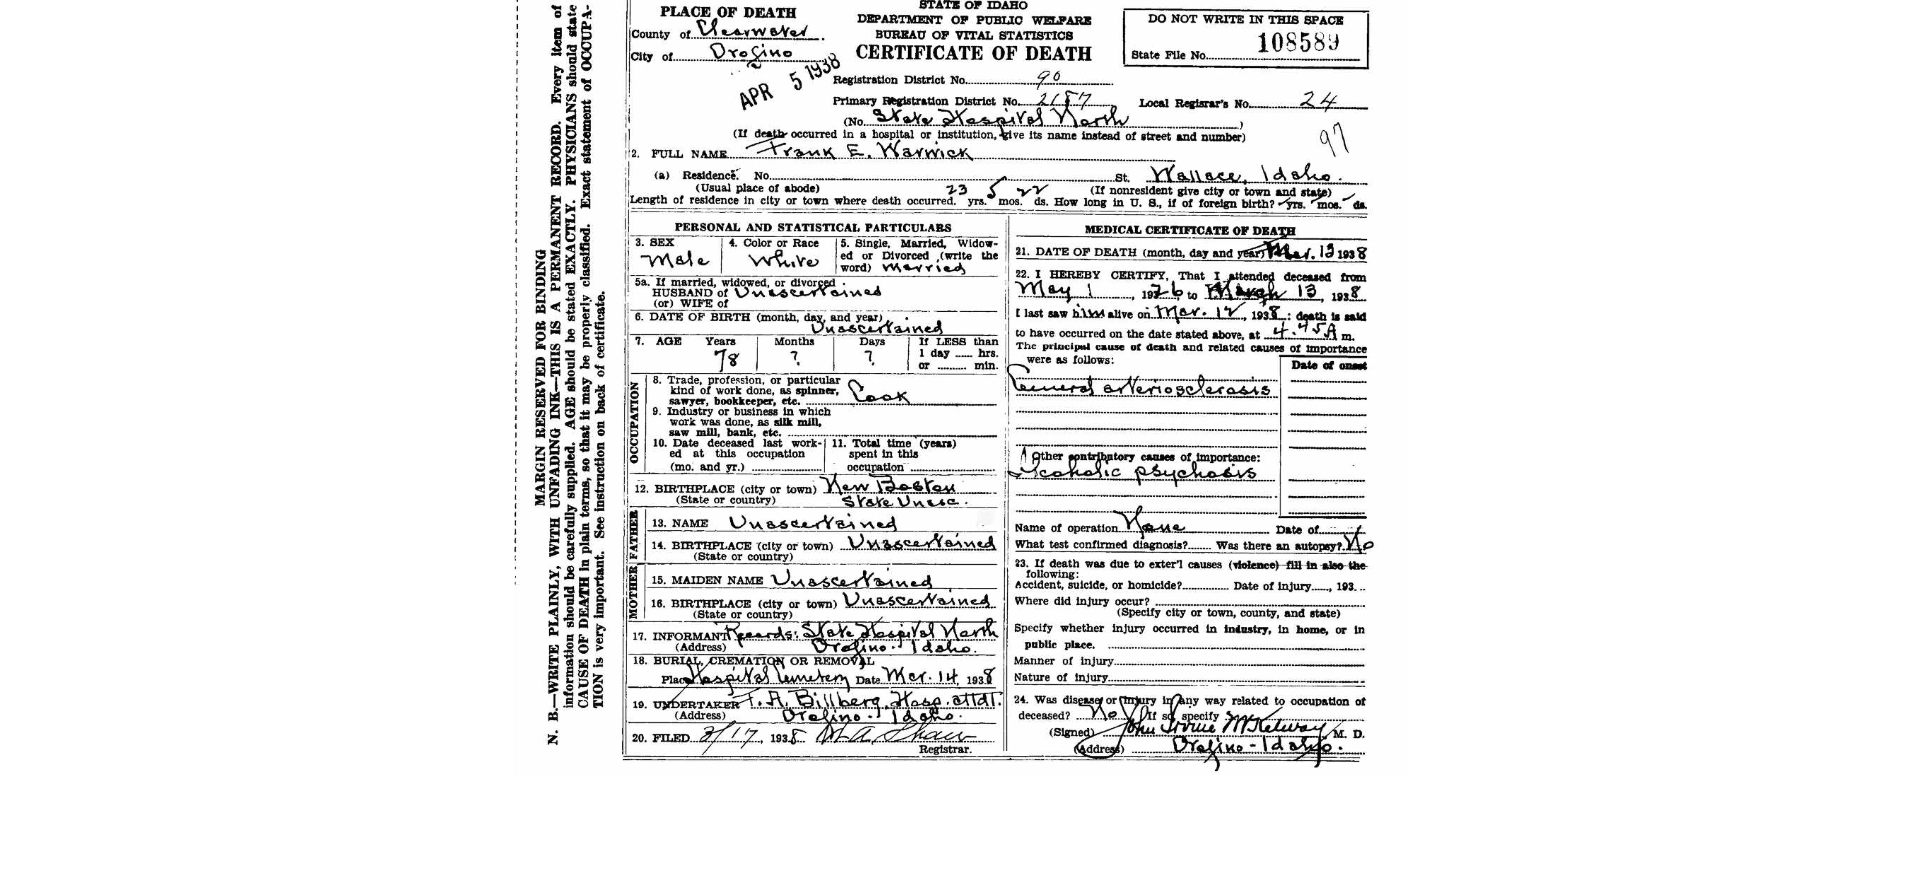 MARGIN RESERVED FOR BINDING
N. B.—WRITE PLAINLY, WITH UNFADING INK—THIS IS A PERMANENT RECORD. Every item of
information should be carefully supplied. AGE should be stated EXACTLY. PHYSICIANS should state
CAUSE OF DEATH in plain terms, so that it may be properly classified. Exact statement of OCCUPA-
TION is very important. See instruction on back of certificate.
PLACE OF DEATH
County of Clearwater
City of Orofino
APR 5 1938
STATE OF IDAHO
DEPARTMENT OF PUBLIC WELFARE
BUREAU OF VITAL STATISTICS
CERTIFICATE OF DEATH
DO NOT WRITE IN THIS SPACE
State File No. 108589
Registration District No. 90
Primary Registration District No. 2157 Local Regisrar's No. 24
(No. State Hospital North)
(If death occurred in a hospital or institution, give its name instead of street and number)
97
2. FULL NAME Frank E. Warwick
(a) Residence. No. St. Wallace, Idaho.
(Usual place of abode) (If nonresident give city or town and state)
Length of residence in city or town where death occurred. 23 yrs. 5 mos. 22 ds. How long in U. S., if of foreign birth? yrs. mos. ds.
PERSONAL AND STATISTICAL PARTICULARS
3. SEX Male
4. Color or Race White
5. Single, Married, Widow-
ed or Divorced (write the
word) Married
5a. If married, widowed, or divorced
HUSBAND of Unascertained
(or) WIFE of
6. DATE OF BIRTH (month, day, and year)
Unascertained
7. AGE Years Months Days If LESS than
1 day hrs.
or min.
78 ? ?
OCCUPATION
8. Trade, profession, or particular
kind of work done, as spinner,
sawyer, bookkeeper, etc. Cook
9. Industry or business in which
work was done, as silk mill,
saw mill, bank, etc.
10. Date deceased last work-
ed at this occupation
(mo. and yr.)
11. Total time (years)
spent in this
occupation
12. BIRTHPLACE (city or town) New Boston
(State or country) State Unasc.
FATHER
13. NAME Unascertained
14. BIRTHPLACE (city or town) Unascertained
(State or country)
MOTHER
15. MAIDEN NAME Unascertained
16. BIRTHPLACE (city or town) Unascertained
(State or country)
17. INFORMANT Records: State Hospital North
(Address) Orofino - Idaho.
18. BURIAL, CREMATION OR REMOVAL
Place Hospital Cemetery Date Mar. 14, 1938
19. UNDERTAKER F. A. Billberg, Hosp. attdt.
(Address) Orofino - Idaho.
20. FILED 3/17, 1938 M.A. Shaw
Registrar.
MEDICAL CERTIFICATE OF DEATH
21. DATE OF DEATH (month, day and year) Mar. 13 1938
22. I HEREBY CERTIFY, That I attended deceased from
May 1, 1926, to March 13, 1938
I last saw him alive on Mar. 12, 1938: death is said
to have occurred on the date stated above, at 4.45A m.
The principal cause of death and related causes of importance
were as follows:
Date of onset
General arteriosclerosis
Other contributory causes of importance:
Alcoholic psychosis
Name of operation None Date of
What test confirmed diagnosis? Was there an autopsy? No
23. If death was due to exter'l causes (violence) fill in also the
following:
Accident, suicide, or homicide? Date of injury , 193
Where did injury occur?
(Specify city or town, county, and state)
Specify whether injury occurred in industry, in home, or in
public place.
Manner of injury
Nature of injury
24. Was disease or injury in any way related to occupation of
deceased? No If so, specify
(Signed) John Irvine McKelway M. D.
(Address) Orofino - Idaho.